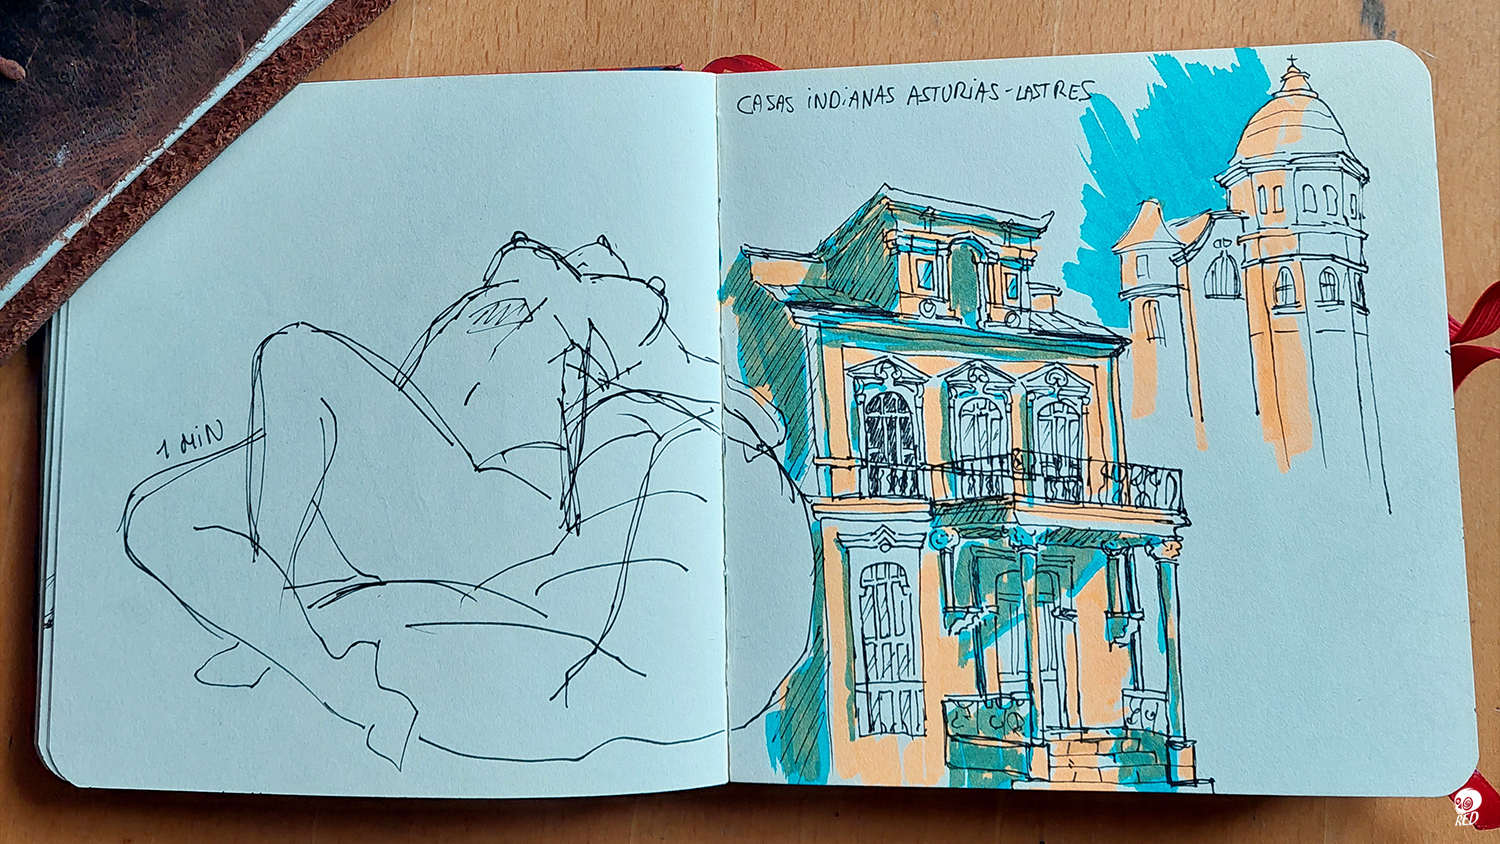 1 MiN
CASAS iNDiANAS ASTURiAS-LASTRES
RED